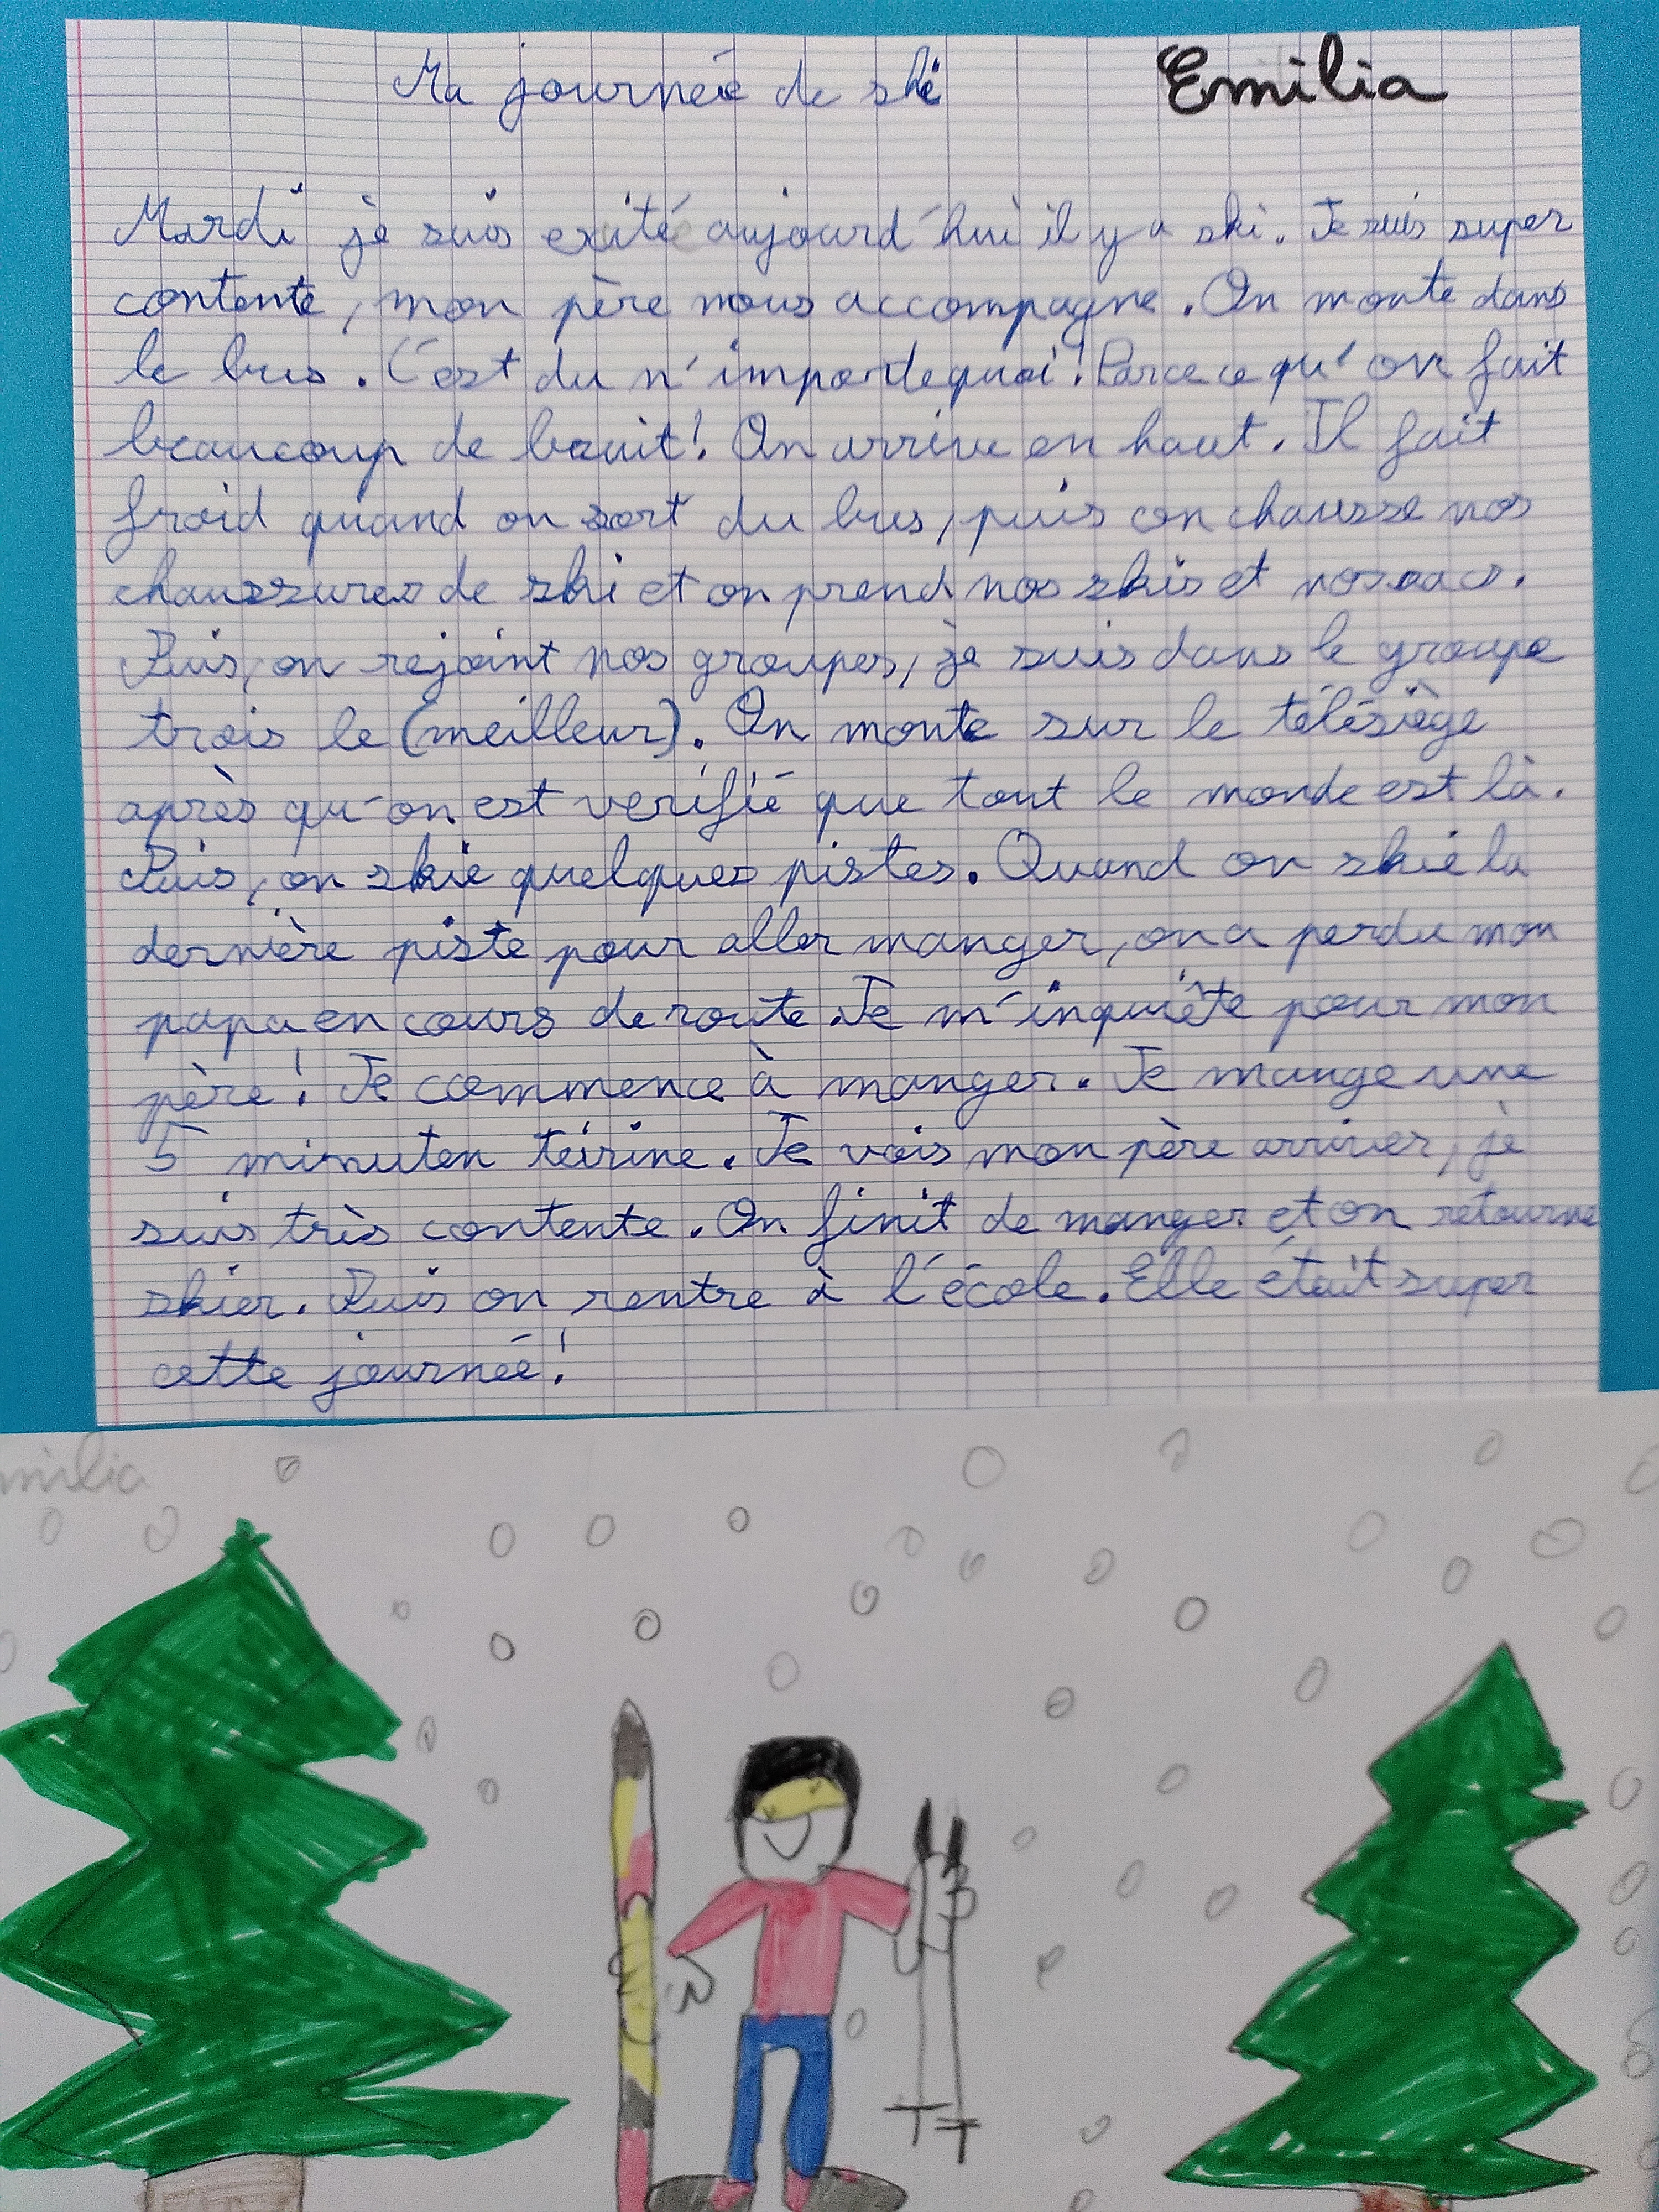 Ma journée de ski
Emilia
Mardi je suis exité aujourd'hui il y a ski. Je suis super
contente, mon père nous accompagne. On monte dans
le bus. C'est du n'importe quoi! Parce ce qu'on fait
beaucoup de bruit! On arrive en haut. Il fait
froid quand on sort du bus, puis on chausse nos
chaussures de ski et on prend nos skis et nos sacs.
Puis, on rejoint nos groupes, je suis dans le groupe
trois le (meilleur). On monte sur le télésiège
après qu'on est verifié que tout le monde est là.
Puis, on skie quelques pistes. Quand on skie la
dernière piste pour aller manger, on a perdu mon
papa en cours de route. Je m'inquiête pour mon
père! Je commence à manger. Je mange une
5 minuten teirine. Je vois mon père arriver, je
suis très contente. On finit de manger et on retourne
skier. Puis on rentre à l'école. Elle était super
cette journée!
milia